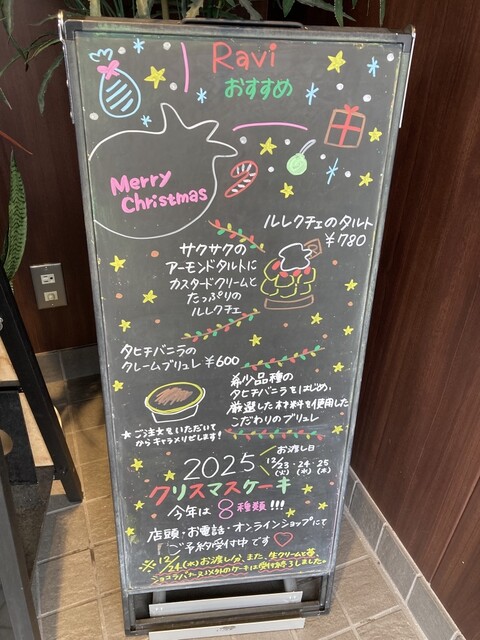 Ravi
おすすめ
Merry
Christmas
ルレクチェのタルト
¥780
サクサクの
アーモンドタルトに
カスタードクリームと
たっぷりの
ルレクチェ
タヒチバニラの
クレームブリュレ ¥600
希少品種の
タヒチバニラをはじめ、
厳選した材料を使用した
こだわりのブリュレ
★ご注文をいただいて
からキャラメリゼします!
2025
お渡し日
12/23・24・25
(火)(水)(木)
クリスマスケーキ
今年は 8種類!!!
店頭・お電話・オンラインショップにて
ご予約受付中です♡
※12/24(水)お渡し分、また、生クリームと苺、
ショコラバナーヌ以外のケーキは受付終了しました。